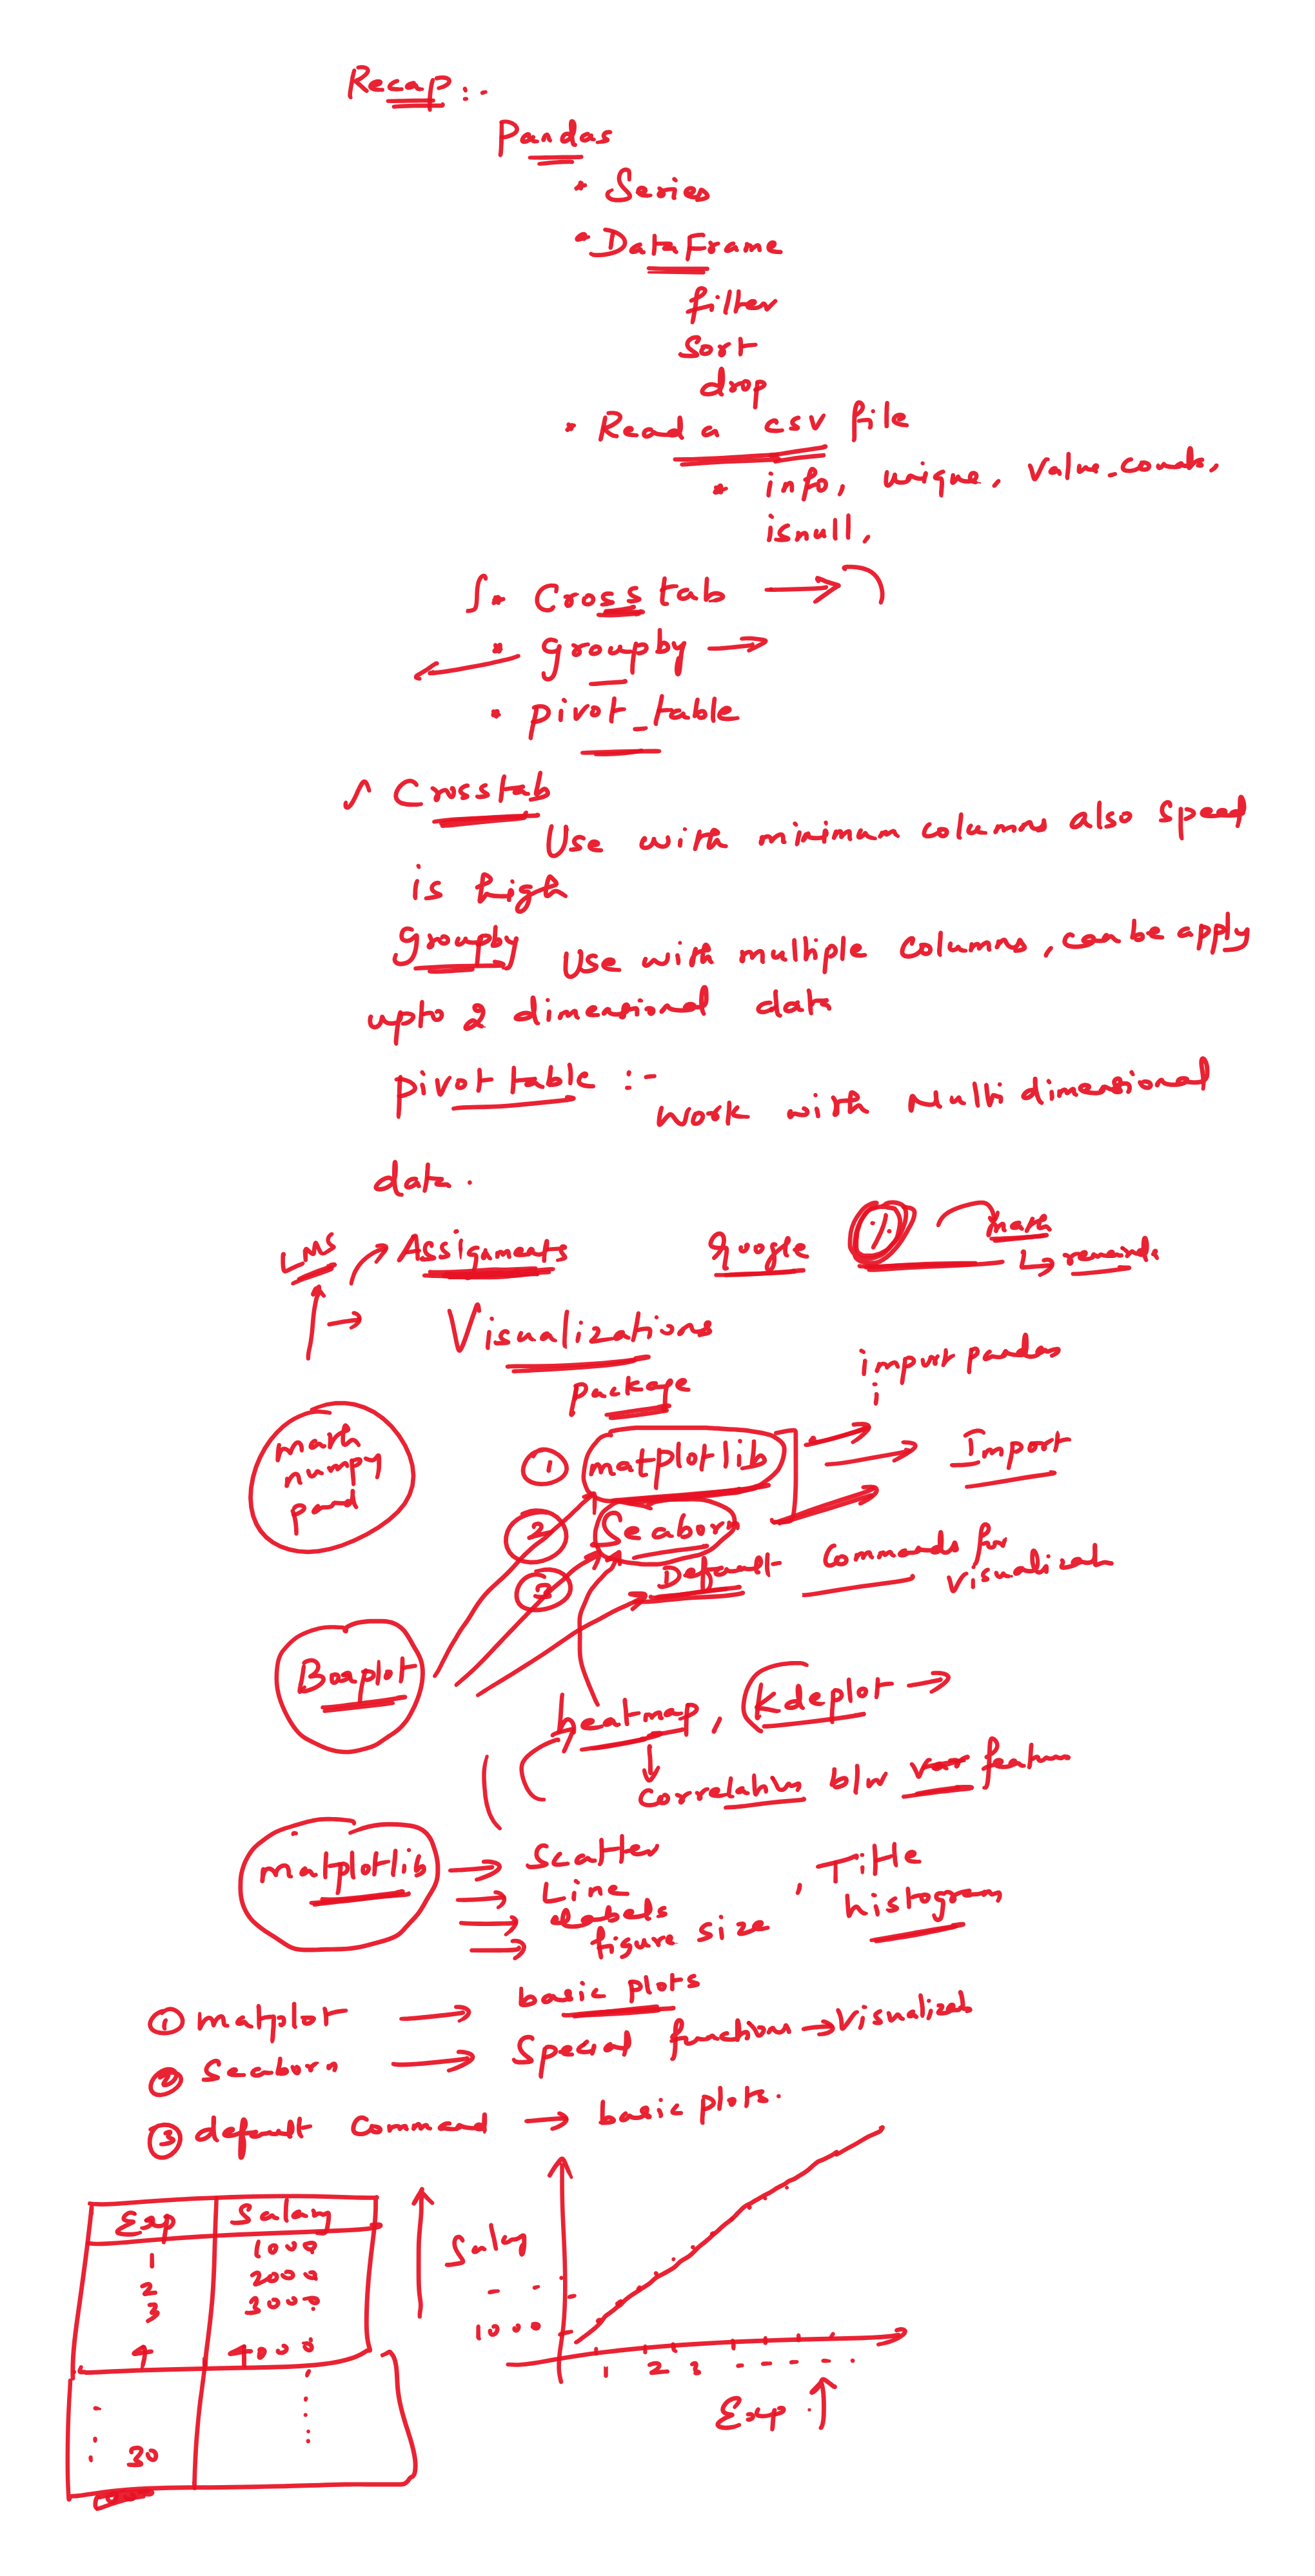 Recap :-
Pandas
• Series
• DataFrame
filter
Sort
drop
• Read a csv file
* info, unique, value_counts,
isnull,
• Cross tab →
• groupby →
• pivot_table
Crosstab
Use with minimum columns also speed
is high
groupby Use with multiple columns, can be apply
upto 2 dimensional data
pivot table :-
Work with Multi dimensional
data.
LMS Assignments google % math
→ reminds
Visualizations
package
import pandas
i
math
numpy
pand
① matplotlib → Import
② Seaborn
③ Default Commands for
visualizat
Boxplot
heatmap, Kdeplot →
Correlation b/w var features
matplotlib → Scatter
→ Line
→ labels
→ figure size, Title
histogram
① matplot → basic plots
② Seaborn → Special functions → Visualizat
③ default Command → basic plots.
Exp Salary
1 1000
2 2000
3 3000
4 4000
30
Salary
1000
1 2 3
Exp